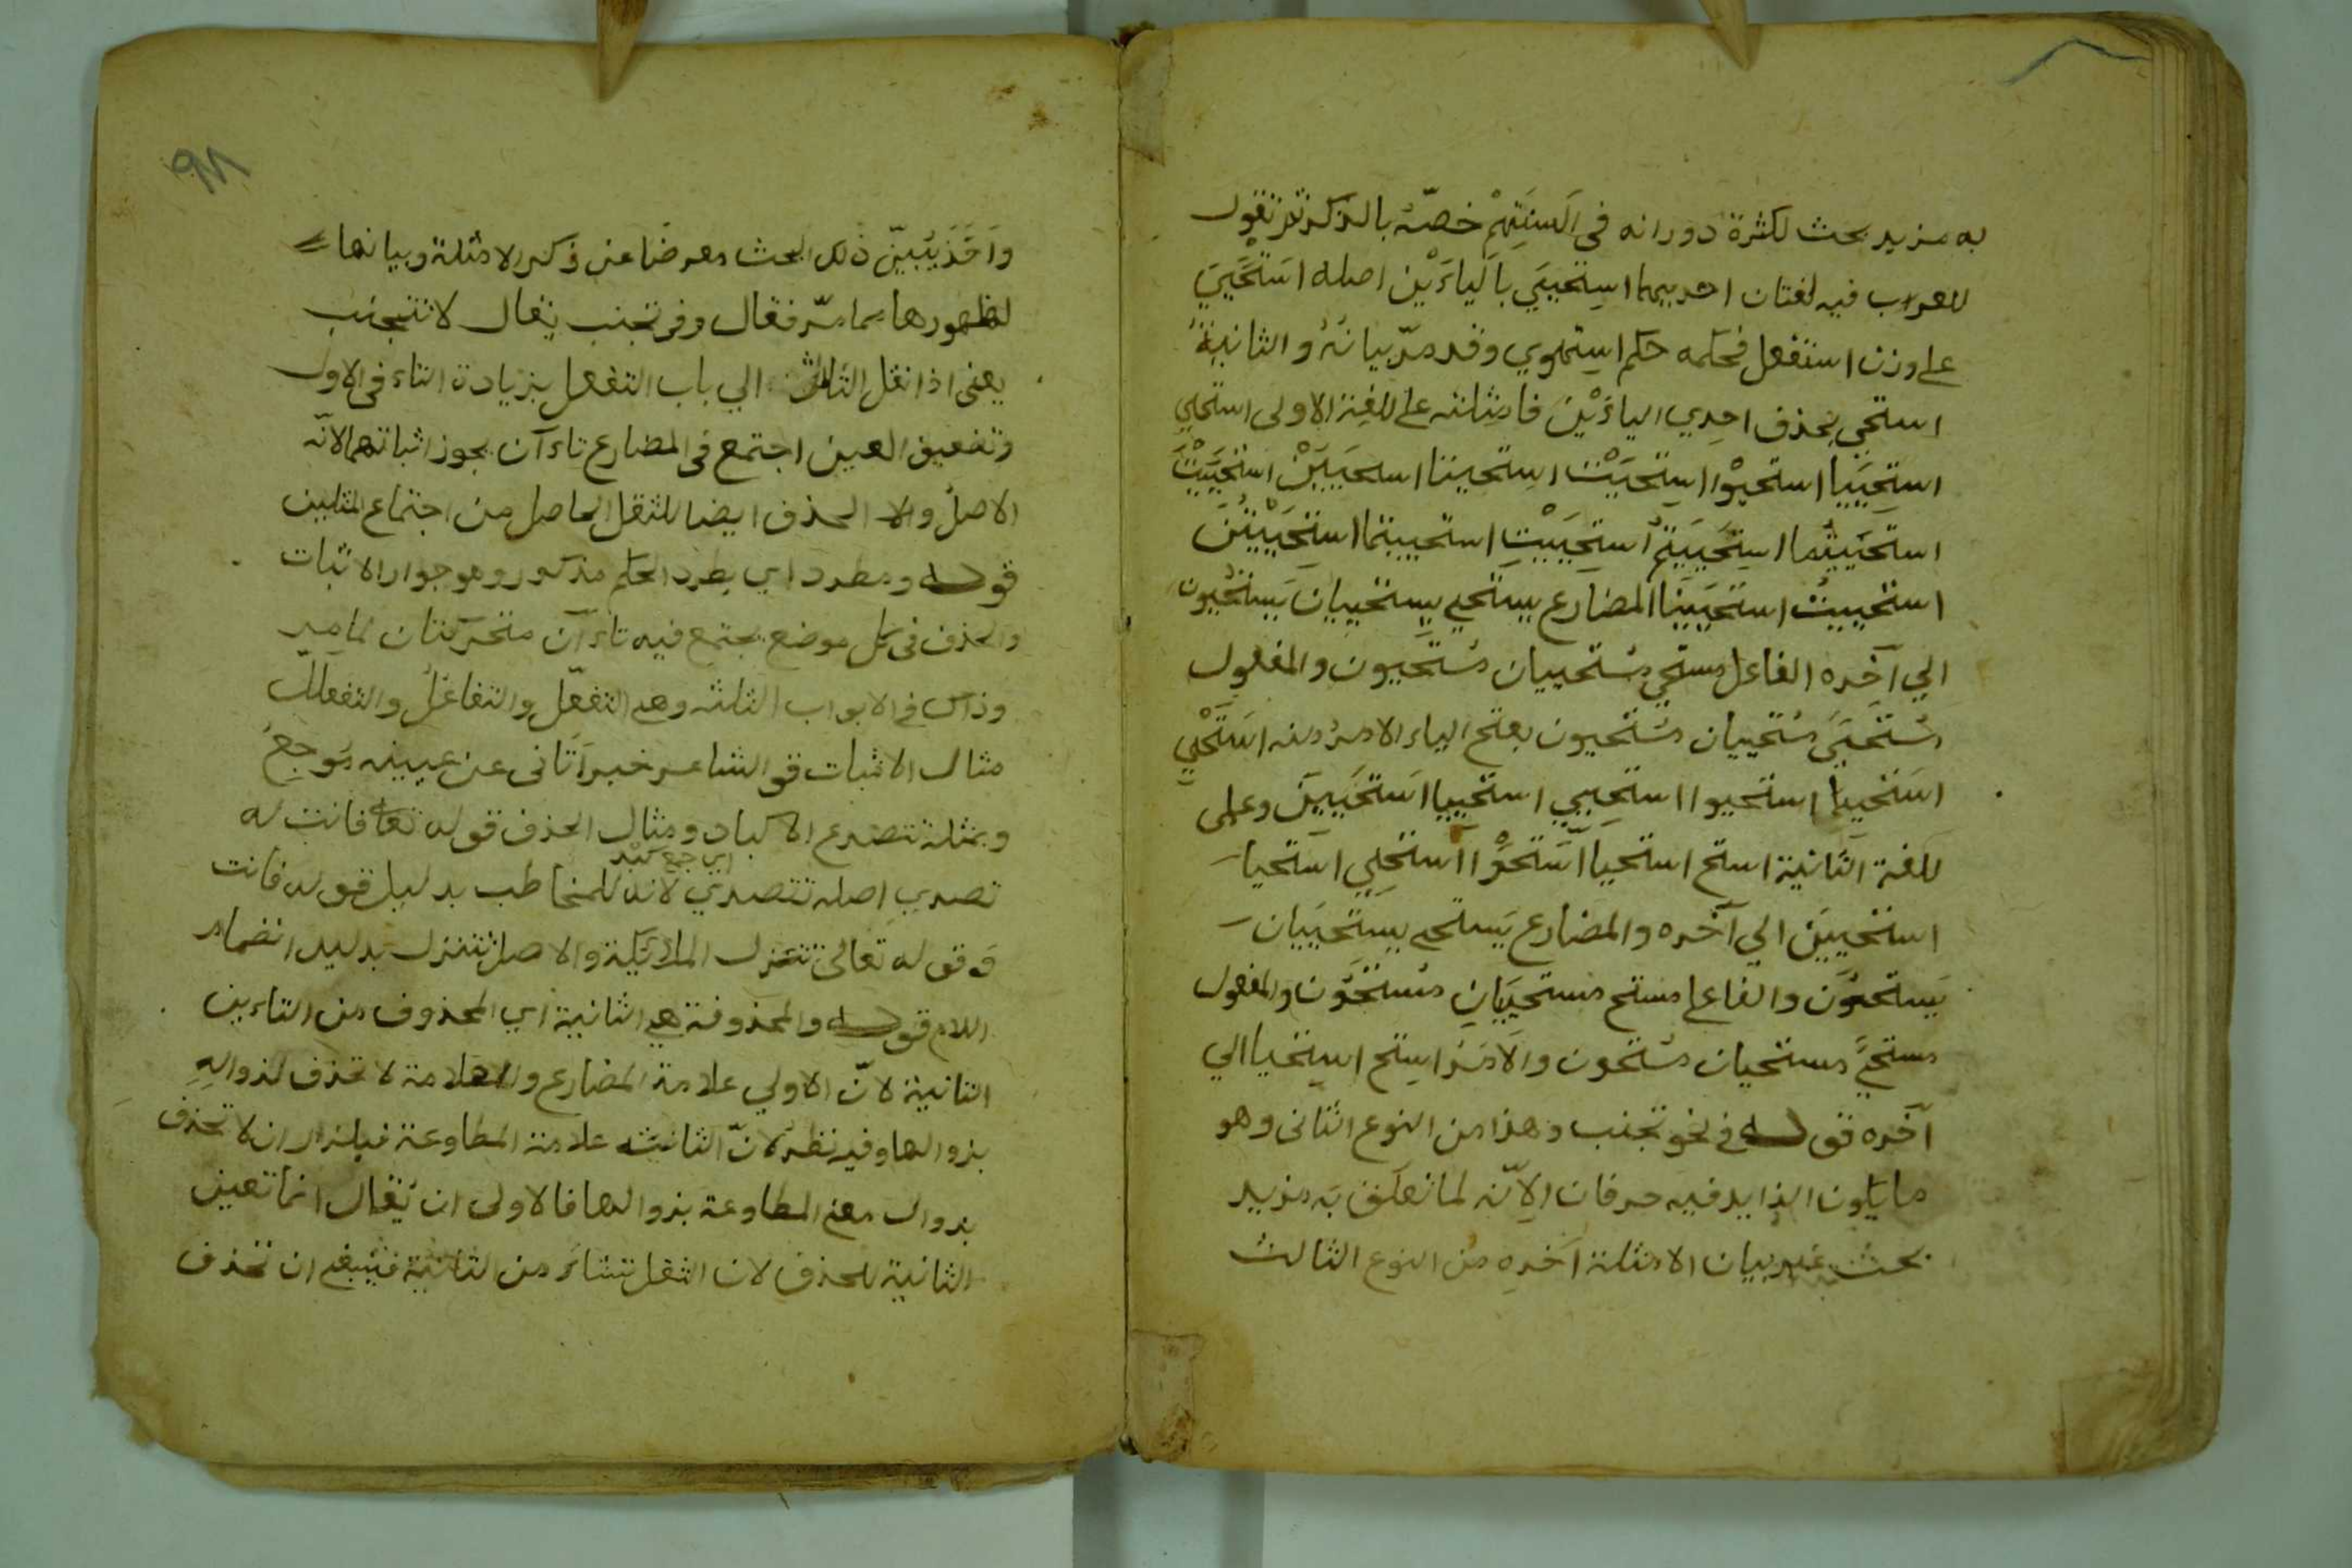 به مزيد بحث لكثرة دورانه فى اَلسنَتِهِمْ خصّه بالذكر ثم تقول
للعراب فيه لغتان احديهما اسِتحييَي بالَياءَيْن اصله استَحْيَيَ
على وزن استفعل فحكمه حكم اسِتهوي وقد مرّ بيانهُ والثانيةُ
استحي بحذف احِدي الياءَيْنَ فامثلته على للغة الاولى استحيي
استِحيَيا استحيوْا استِحيَيْت استحيتا استحيَيَيْن استحيَيْتَ
استحَييتُما استِحَييَتمُ استِحيَيْتِ استحييتما استِحَيْيتُنَ
استحييتُ استحَيَينَا المضارع يستحي يستحييان يَستحْيُون
الي آخره الفاعل مستحي مسُتحييان مسُتحَيون والمفعول
مسُتحيَيَ مسُتحييان مسُتحيون بفتح الياء الامرُ منه استَحْيي
استحييا استحيوا استحِيي استحييا استحَيِينَ وعلى
للغة الثانية استح استحيا اسَّتحوْا استحيِي استحيا
استحيينَ الي آخره والمضارع يَستحي يستحيَيان
يَستحوُن والفاعل مستح مستحيَيان مسُتحوُن والمفعول
مستحيً مستحيان مسُتحون والاَمَرُ استح استِحيا الي
آخره قوله في نحو تجنب وهذا من النوع الثانى وهو
ما يكون الزايد فيه حرفان الاِنّه لما تعلَقَ بَه مزيد
بحث غير بيان الامثلة آخره من النوع الثالث
واَخَذَ يُبيّن ذلك البحث معرضًا عن ذكر الامثلة وبيانها
لظهورها مما مرّ فقال وفى تجنب يقال لا تتجنب
يعنى اذا نقل الثلاث الي باب التفعل بزيادة التاء فى الاول
وتضعيق العين اجتمع فى المضارع تاءآن يجوز اثباتهما لانّه
الاصلُ والا الحذف ايضا للثقل الحاصل من اجتماع المثلين
قوله ومطرد اي يطرد الحكم مذكور وهو جواز الاثبات
والحذف فى كل موضع يجتمع فيه تاءآن متحركتان لما مر
وذاك فى الابواب الثلثه وهي التفعّل والتفاعُل والتفعلل
مثال الاثبات قو الشاعر خبر اَتانى عن عيينه مَوجعُ
وبمثله تتصدع الاكباد ومثال الحذف قوله تعالى فانت له
اي جمع كبد
تصدي اصله تتصدي لانه للمخاطب بدليل قوله فانت
و قوله تعالى تتنزل الملائكة والاصل تتنزل بدليل انضمام
اللام قوله والمحذوفة هي الثانية اي المحذوف من التاءين
الثانية لانّ الاولي علامة المضارع والعلامة لا تحذف لزوالهِ
بزوالها وفيه نظر لانّ الثانيه علامة المطاوعة فيلزم ان لا تحذف
بزوال معنى المطاوعة بزوالها فالاولى ان يُقال انما تعين
الثانية للحذف لان الثقل تنشاءَ من الثانية فينبغي ان تحذف